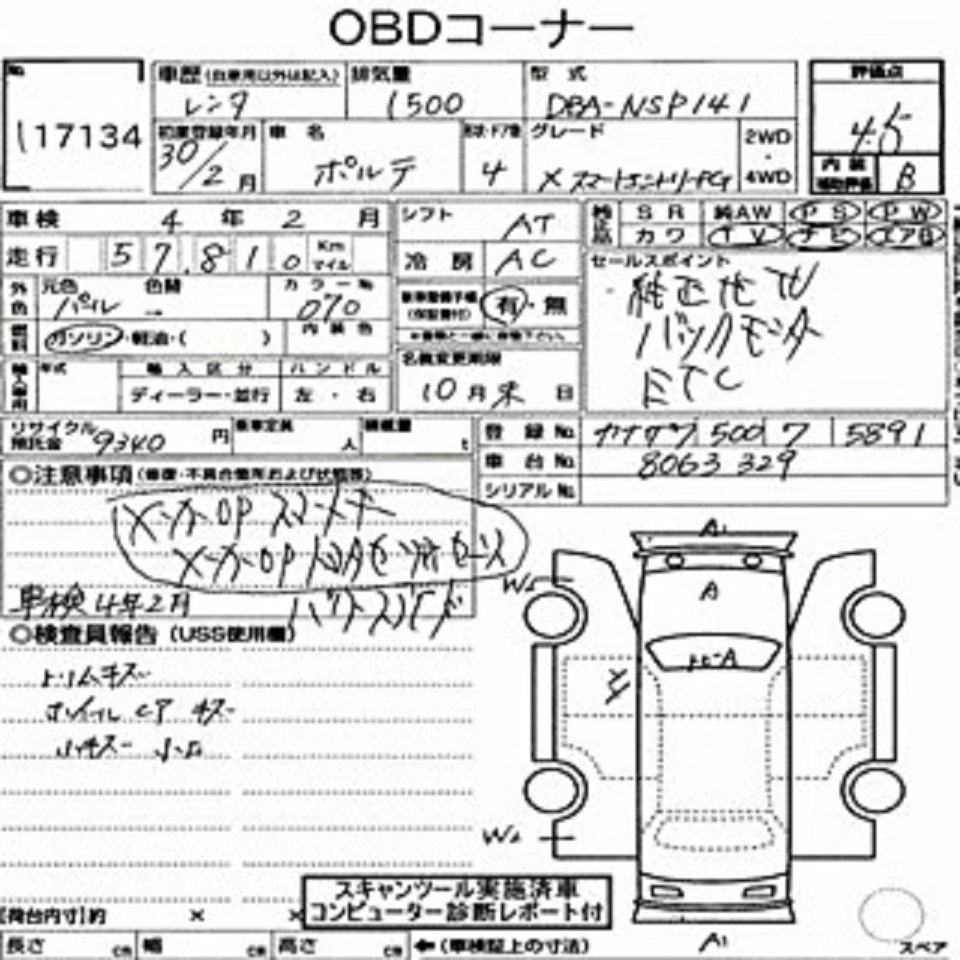 OBDコーナー
No. 117134
車歴 (自家用以外は記入) レンタ
排気量 1500
型式 DBA-NSP141
評価点 4.5
初度登録年月 30/2月
車名 ポルテ
形状・ドア数 4
グレード X スマートエントリーPG
2WD・4WD
内装補助評価 B
車検 4年2月
シフト AT
純正品 SR 純AW PS PW
カワ TV ナビ エアB
走行 57,810 Km マイル
冷房 AC
セールスポイント
純正地TV
バックモニター
ETC
外色 元色 パール 色替 → カラーNo. 070
新車整備手帳 (保証書付) 有・無
燃料 ガソリン・軽油・( ) 内装色
名義変更期限 10月末日
輸入車用 年式 輸入区分 ディーラー・並行 ハンドル 左・右
リサイクル預託金 9340円
乗車定員 人
積載量 t
登録No. 500 7 5891
車台No. 8063329
シリアルNo.
◎注意事項 (修復・不具合箇所および状態等)
メーカーOP スマートキー
メーカーOP
車検4年2月
◎検査員報告 (USS使用欄)
トリムキズ
小キズ 小凹
A1
A
W2
トビ-A
W2
A1
スキャンツール実施済車
コンピューター診断レポート付
[荷台内寸]約 × ×
長さ cm 幅 cm 高さ cm ←(車検証上の寸法)
スペア